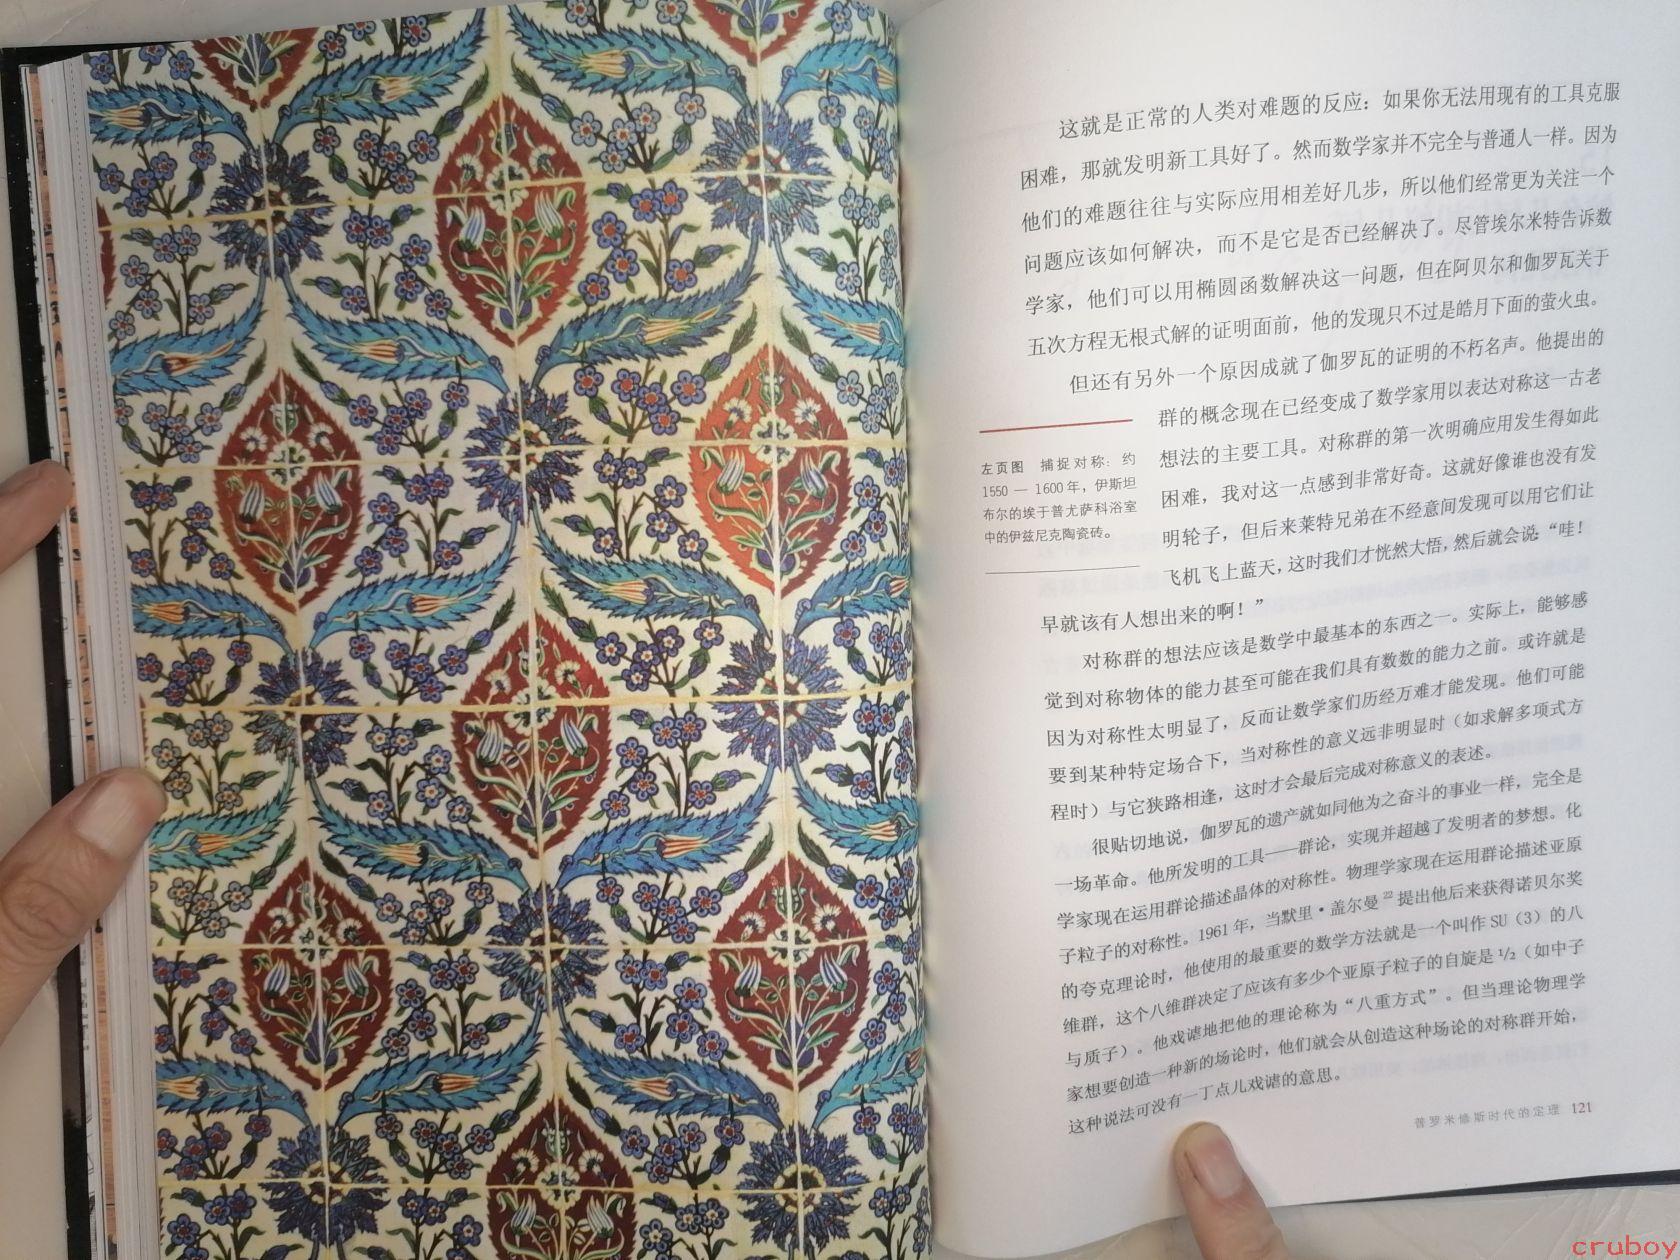 这就是正常的人类对难题的反应：如果你无法用现有的工具克服
困难，那就发明新工具好了。然而数学家并不完全与普通人一样。因为
他们的难题往往与实际应用相差好几步，所以他们经常更为关注一个
问题应该如何解决，而不是它是否已经解决了。尽管埃尔米特告诉数
学家，他们可以用椭圆函数解决这一问题，但在阿贝尔和伽罗瓦关于
五次方程无根式解的证明面前，他的发现只不过是皓月下面的萤火虫。
但还有另外一个原因成就了伽罗瓦的证明的不朽名声。他提出的
群的概念现在已经变成了数学家用以表达对称这一古老
想法的主要工具。对称群的第一次明确应用发生得如此
困难，我对这一点感到非常好奇。这就好像谁也没有发
明轮子，但后来莱特兄弟在不经意间发现可以用它们让
飞机飞上蓝天，这时我们才恍然大悟，然后就会说：“哇！
早就该有人想出来的啊！”
左页图 捕捉对称：约
1550 — 1600年，伊斯坦
布尔的埃于普尤萨科浴室
中的伊兹尼克陶瓷砖。
对称群的想法应该是数学中最基本的东西之一。实际上，能够感
觉到对称物体的能力甚至可能在我们具有数数的能力之前。或许就是
因为对称性太明显了，反而让数学家们历经万难才能发现。他们可能
要到某种特定场合下，当对称性的意义远非明显时（如求解多项式方
程时）与它狭路相逢，这时才会最后完成对称意义的表述。
很贴切地说，伽罗瓦的遗产就如同他为之奋斗的事业一样，完全是
一场革命。他所发明的工具——群论，实现并超越了发明者的梦想。化
学家现在运用群论描述晶体的对称性。物理学家现在运用群论描述亚原
子粒子的对称性。1961 年，当默里·盖尔曼22提出他后来获得诺贝尔奖
的夸克理论时，他使用的最重要的数学方法就是一个叫作 SU（3）的八
维群，这个八维群决定了应该有多少个亚原子粒子的自旋是 ½（如中子
与质子）。他戏谑地把他的理论称为“八重方式”。但当理论物理学
家想要创造一种新的场论时，他们就会从创造这种场论的对称群开始，
这种说法可没有一丁点儿戏谑的意思。
普罗米修斯时代的定理 121
cruboy